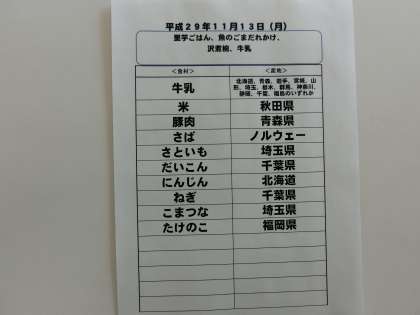 平成29年11月13日(月)
里芋ごはん、魚のごまだれかけ、
沢煮椀、牛乳
<食材> <産地>
牛乳 北海道、青森、岩手、宮城、山
形、埼玉、栃木、群馬、神奈川、
静岡、千葉、福島のいずれか
米 秋田県
豚肉 青森県
さば ノルウェー
さといも 埼玉県
だいこん 千葉県
にんじん 北海道
ねぎ 千葉県
こまつな 埼玉県
たけのこ 福岡県